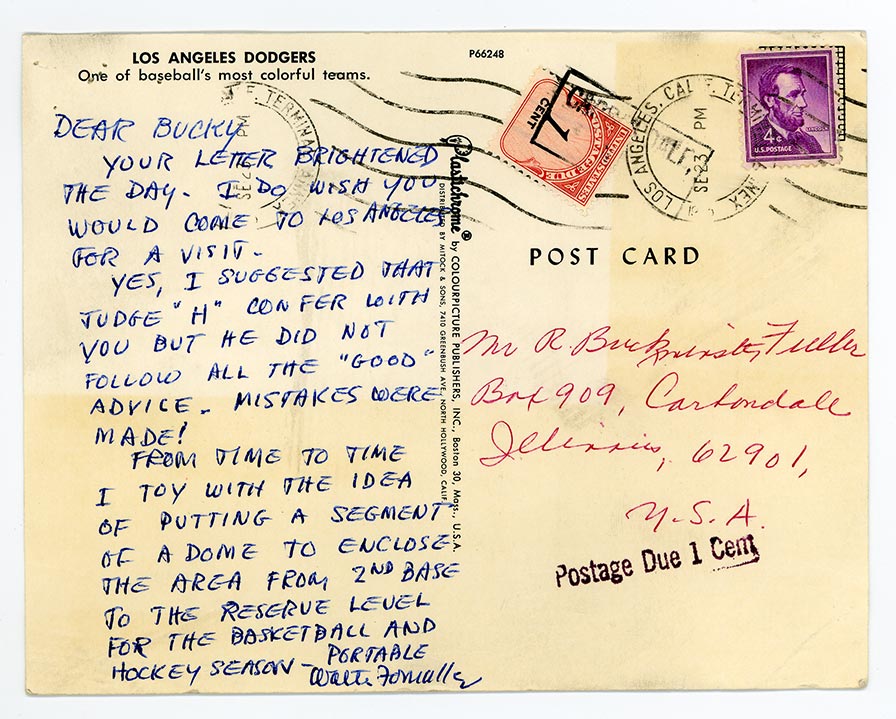 LOS ANGELES DODGERS
One of baseball's most colorful teams.
P66248
DEAR BUCKY
YOUR LETTER BRIGHTENED
THE DAY. I DO WISH YOU
WOULD COME TO LOS ANGELES
FOR A VISIT.
YES, I SUGGESTED THAT
JUDGE "H" CONFER WITH
YOU BUT HE DID NOT
FOLLOW ALL THE "GOOD"
ADVICE. MISTAKES WERE
MADE!
FROM TIME TO TIME
I TOY WITH THE IDEA
OF PUTTING A SEGMENT
OF A DOME TO ENCLOSE
THE AREA FROM 2ND BASE
TO THE RESERVE LEVEL
FOR THE BASKETBALL AND
HOCKEY SEASON - PORTABLE
Walter O'Malley
Plastichrome® by COLOURPICTURE PUBLISHERS, INC., Boston 30, Mass. U.S.A.
DISTRIBUTED BY MITOCK & SONS, 7410 GREENBUSH AVE., NORTH HOLLYWOOD, CALIF.
1
CENT
POSTAGE DUE
UNITED STATES
LOS ANGELES, CALIF. TERMINAL ANNEX
PM
SE 23
LINCOLN
4¢
U.S. POSTAGE
POST CARD
Mr R. Buckminster Fuller
Box 909, Carbondale
Illinois, 62901,
U.S.A.
Postage Due 1 Cent